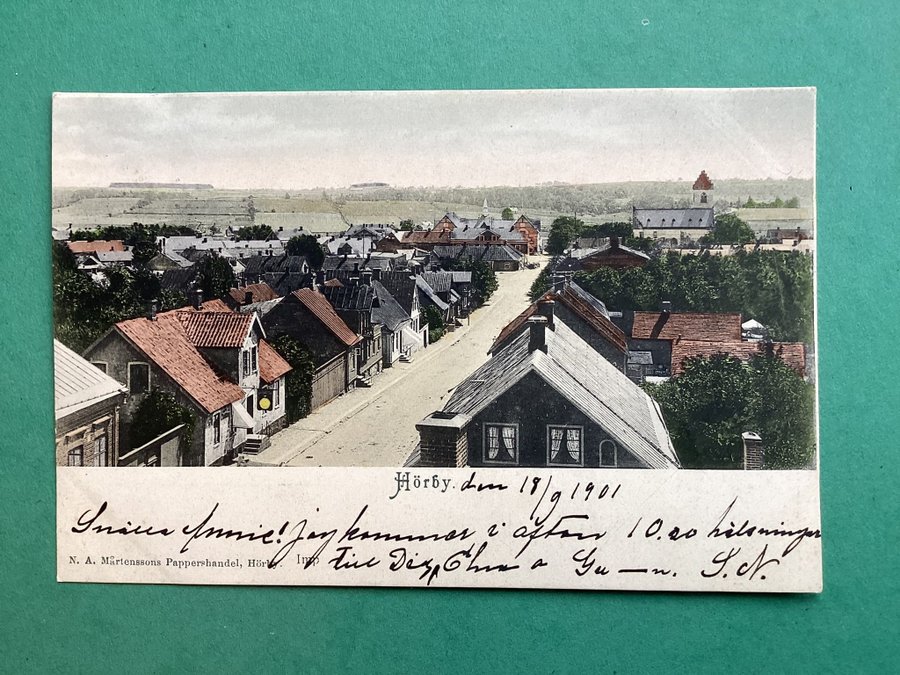 Hörby. den 18/9 1901
Snälla Annie! jag kommer i afton 10.20 hälsningar
N. A. Mårtenssons Pappershandel, Hörby. Imp till Dig, Elna o Gu—n. S.N.